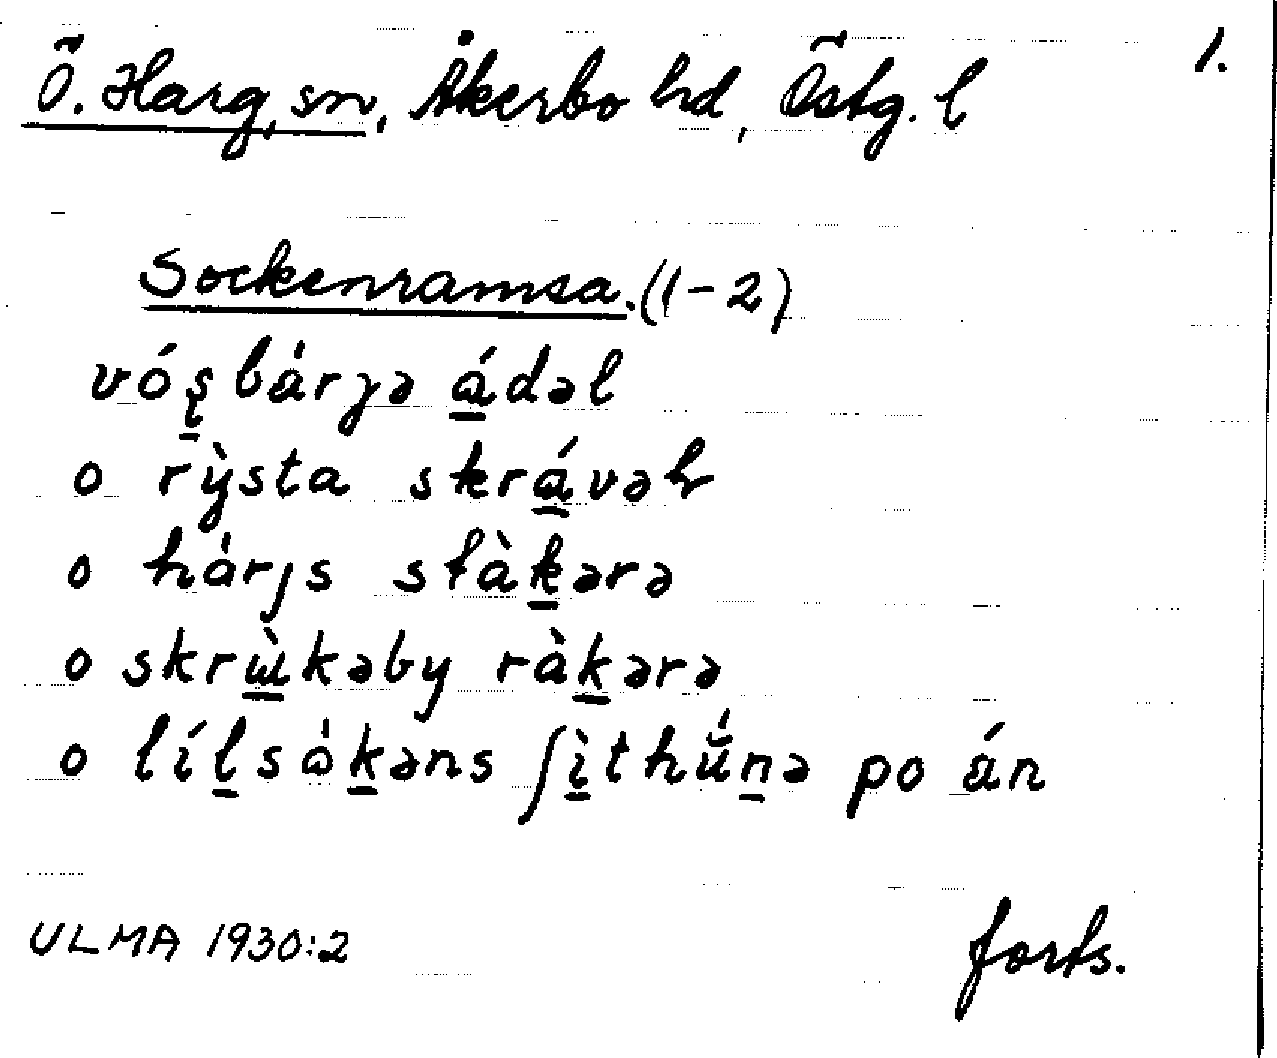 1.
Ö. Harg, sn, Åkerbo hd, Östg. l
Sockenramsa. (1-2)
bárȷə á̱dəl
o rỳsta skrá̱vəł
o hárȷs stàḵərə
o skrɯ̱̀kəby ràḵərə
o líḻsȯḵəns ʃì̱thǘṉə po án
ULMA 1930:2
forts.